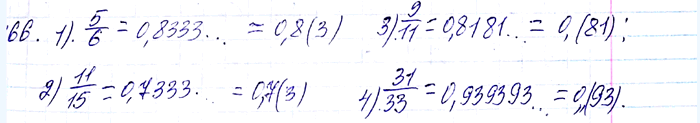 66. 1). 5/6 = 0,8333... = 0,8(3) 3). 9/11 = 0,8181... = 0,(81);
2) 11/15 = 0,7333... = 0,7(3) 4). 31/33 = 0,939393... = 0,(93).